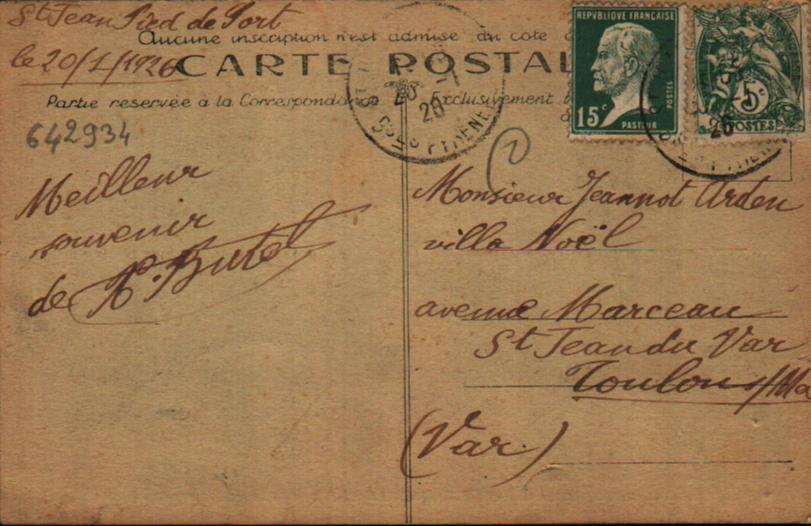 St Jean Pied de Port
le 20/1/1926
Aucune inscription n'est admise du coté
CARTE POSTAL
Partie reservée a la Correspondance
Exclusivement
642934
20 -1
26
PYRENE
REPUBLIQUE FRANÇAISE
15c
POSTES
PASTEUR
5c
POSTES
26
Meilleur
souvenir
de
Monsieur Jeannot Arden
villa Noël
avenue Marceau
St Jean du Var
Toulon s/Me
(Var.)